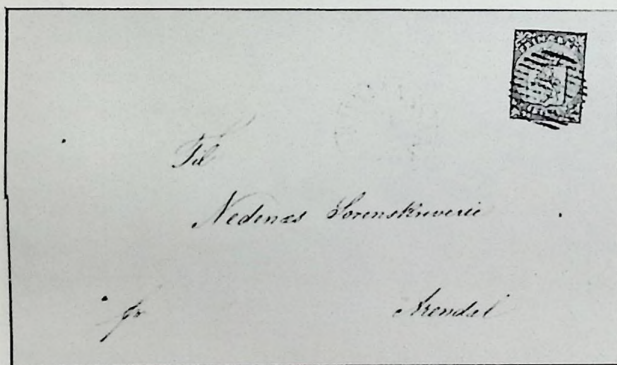 Til
Nedenæs Sorenskriverie
fr
Arendal